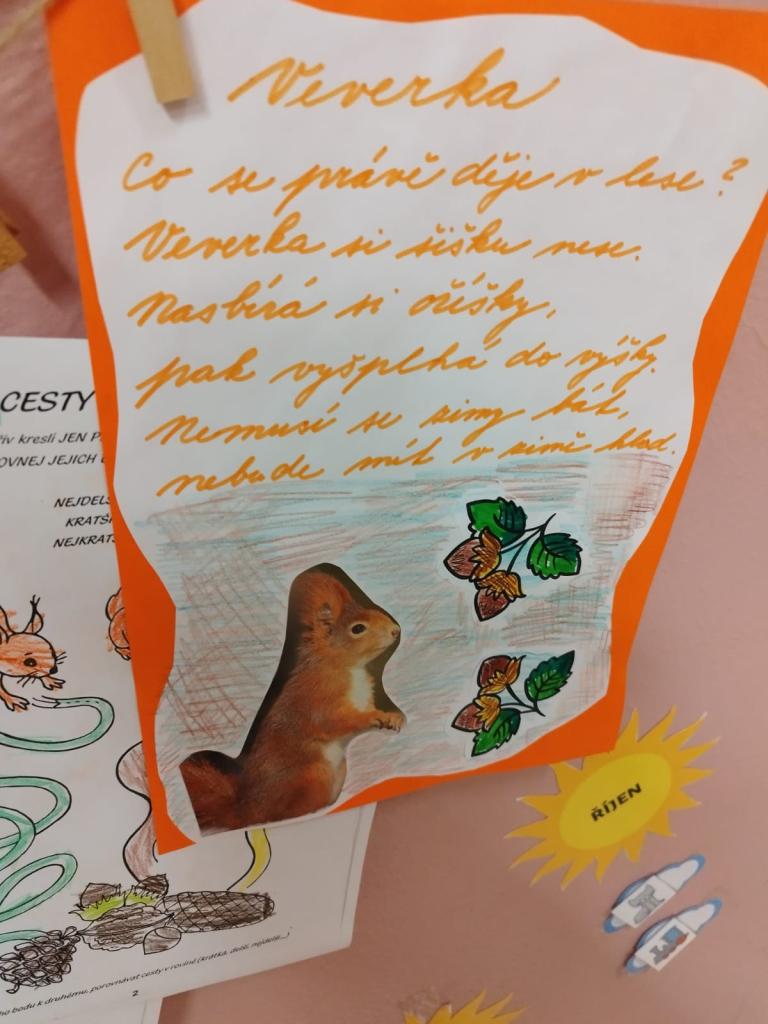 Veverka
Co se právě děje v lese?
Veverka si šišku nese.
Nasbírá si oříšky,
pak vyšplhá do výšky.
Nemusí se zimy bát,
nebude mít v zimě hlad.
CESTY
kresli JEN
JEJICH
ŘÍJEN
bodu k druhému, porovnávat cesty v rovině (krátká, delší, nejdelší...)
2